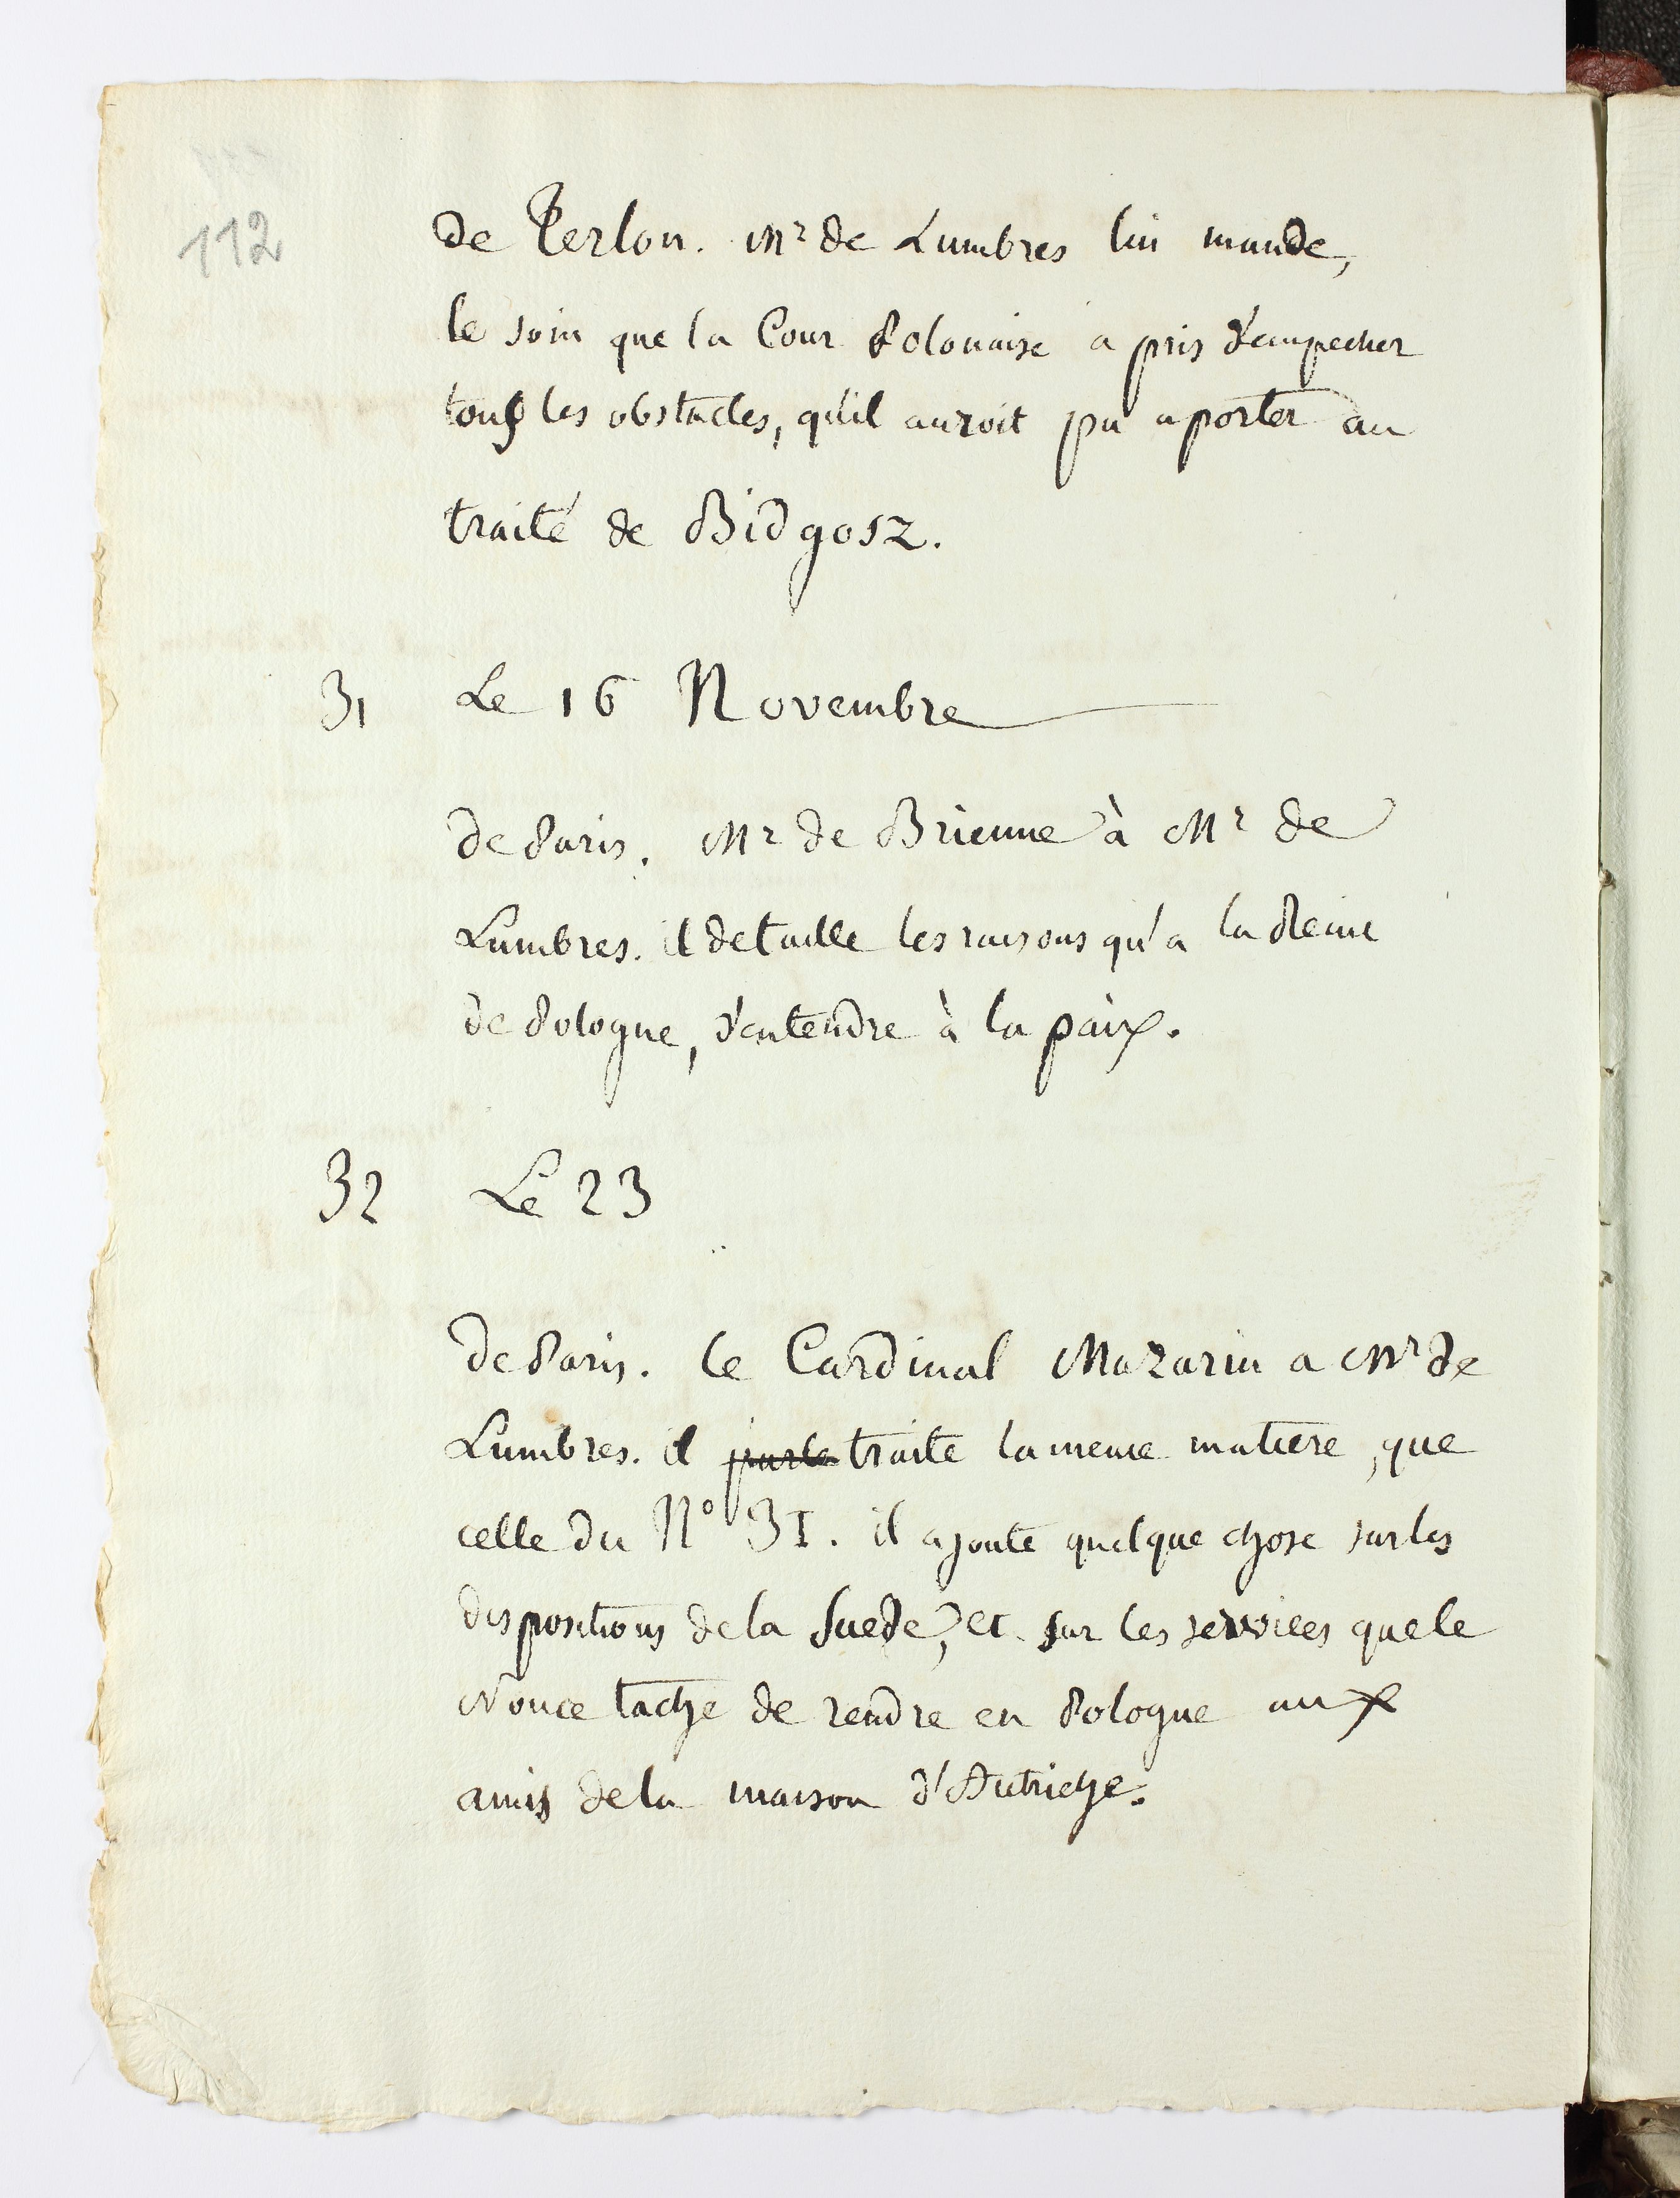 112
de Terlon. Mr de Lumbres lui mande,
le soin que la Cour Polonaise a pris d'empecher
tous les obstacles, qu'il auroit pu aporter au
traité de Bidgosz.
31 Le 16 Novembre
de Paris. Mr de Brienne à Mr de
Lumbres. il detaille les raisons qu'a la Reine
de Pologne, d'entendre à la paix.
32 Le 23
de Paris. le Cardinal Mazarin a Mr de
Lumbres. il parle traite la meme matiere, que
celle du No 31. il ajoute quelque chose sur les
dispositions de la Suede, et sur les services que le
Nonce tache de rendre en Pologne aux
amis de la maison d'Autriche.